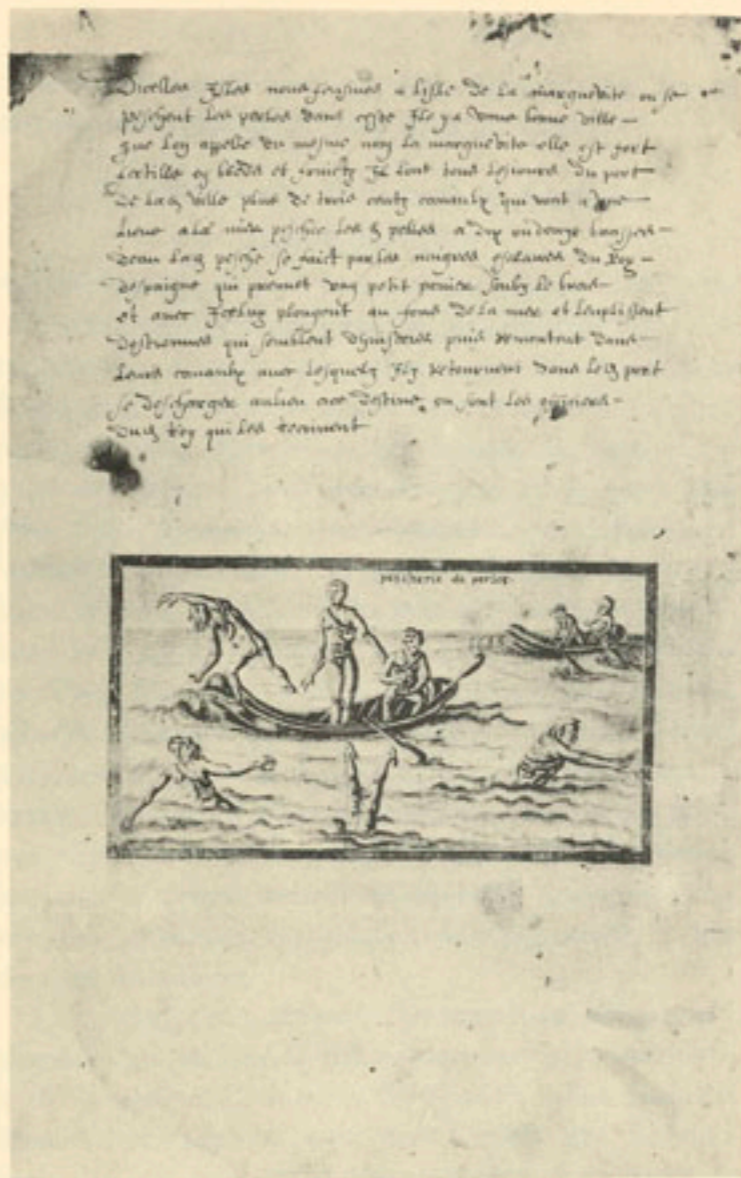 Dicelles Isles nous feusmes a lisle de la marguerite ou se
peschent les perles dans ceste Isle y a une bonne ville
que lon appelle du mesme nom la marguerite elle est fort
fertille en bleds et fruictz Il sont tous les jours du port
de lad ville plus de trois centz canaulx qui vont a une
lieue a la mer pescher les d perles a dix ou douze brasses
deau lad pesche se faict par les naigres esclaves du Roy
despaigne qui prennent ung petit panier soubz le bras
et avec Iceluy plongent au fons de la mer et lemplissent
qui semblent dhuistres puis remontent dans
leurs canaulx avec lesquelz Ilz retournent dans led port
se descharger au lieu a ce destine ou sont les officiers
dud Roy qui les recoivent
pescherie de perles